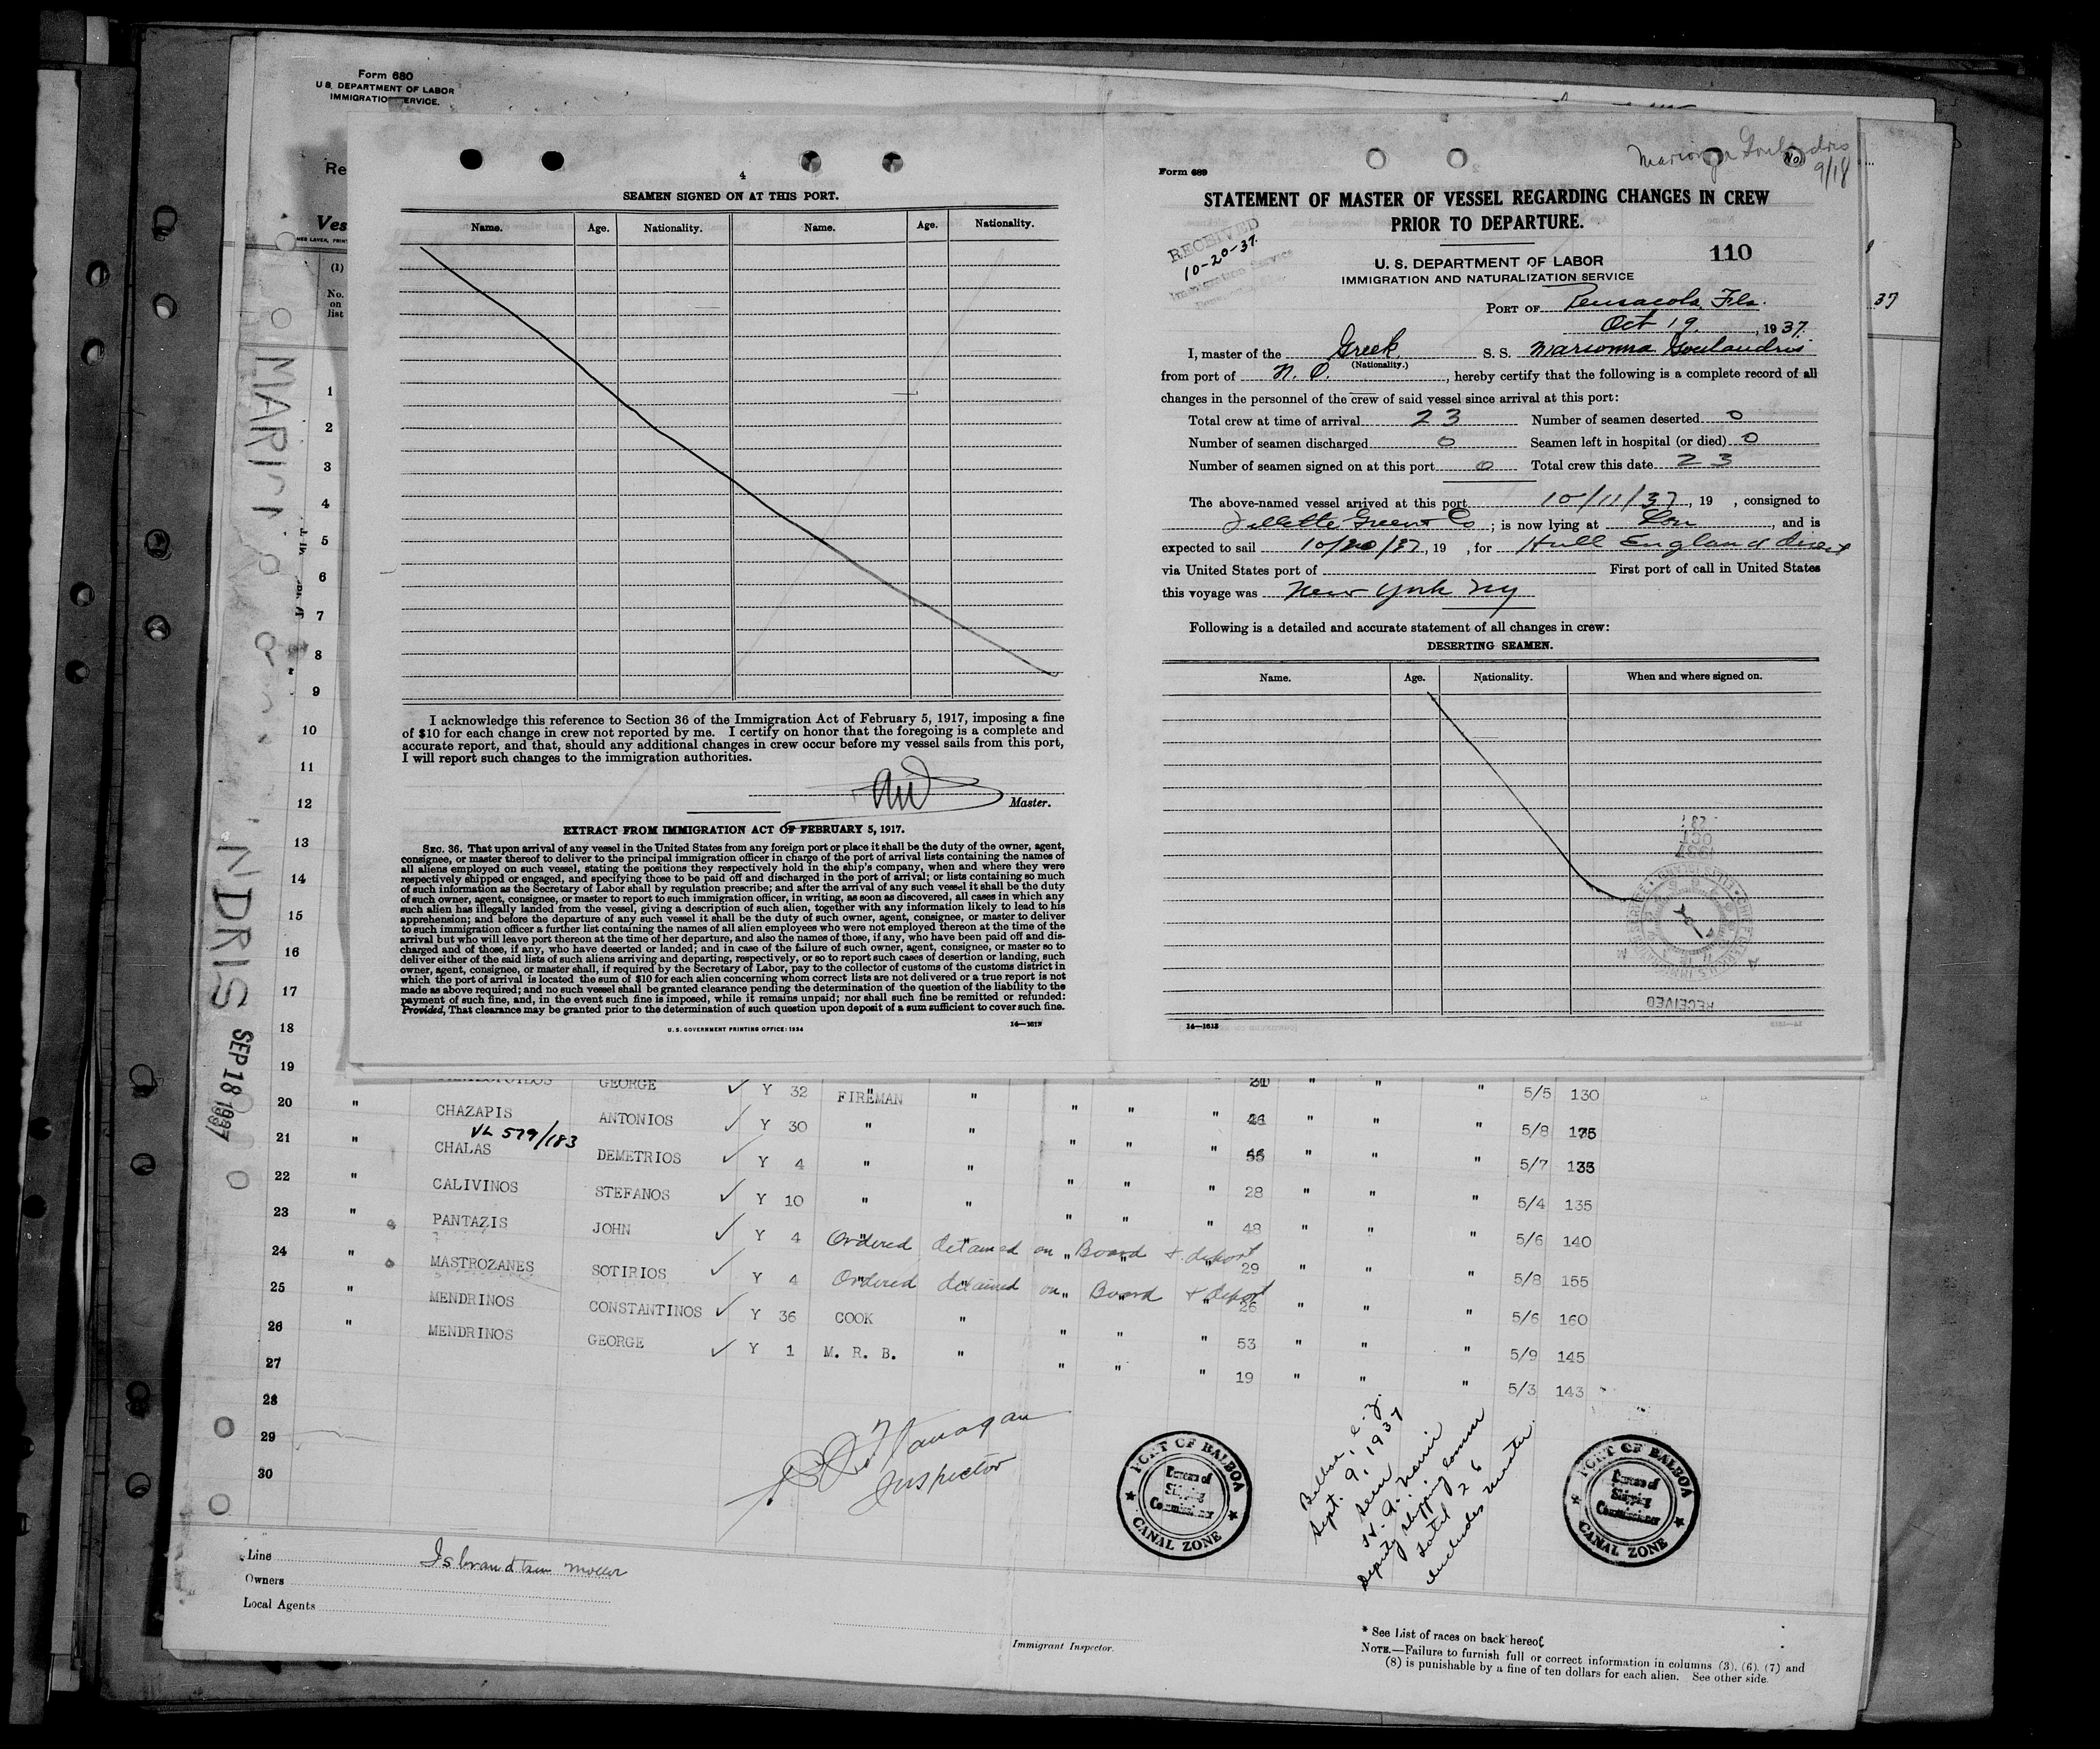 Form 680
U.S. DEPARTMENT OF LABOR
IMMIGRATIO ERVICE.
Re
Ves
(1)
No.
on
list
37
4
SEAMEN SIGNED ON AT THIS PORT.
Name. Age. Nationality. Name. Age. Nationality.
I acknowledge this reference to Section 36 of the Immigration Act of February 5, 1917, imposing a fine
of $10 for each change in crew not reported by me. I certify on honor that the foregoing is a complete and
accurate report, and that, should any additional changes in crew occur before my vessel sails from this port,
I will report such changes to the immigration authorities.
Master.
EXTRACT FROM IMMIGRATION ACT OF FEBRUARY 5, 1917.
SEC. 36. That upon arrival of any vessel in the United States from any foreign port or place it shall be the duty of the owner, agent,
consignee, or master thereof to deliver to the principal immigration officer in charge of the port of arrival lists containing the names of
all aliens employed on such vessel, stating the positions they respectively hold in the ship's company, when and where they were
respectively shipped or engaged, and specifying those to be paid off and discharged in the port of arrival; or lists containing so much
of such information as the Secretary of Labor shall by regulation prescribe; and after the arrival of any such vessel it shall be the duty
of such owner, agent, consignee, or master to report to such immigration officer, in writing, as soon as discovered, all cases in which any
such alien has illegally landed from the vessel, giving a description of such alien, together with any information likely to lead to his
apprehension; and before the departure of any such vessel it shall be the duty of such owner, agent, consignee, or master to deliver
to such immigration officer a further list containing the names of all alien employees who were not employed thereon at the time of the
arrival but who will leave port thereon at the time of her departure, and also the names of those, if any, who have been paid off and dis-
charged and of those, if any, who have deserted or landed; and in case of the failure of such owner, agent, consignee, or master so to
deliver either of the said lists of such aliens arriving and departing, respectively, or so to report such cases of desertion or landing, such
owner, agent, consignee, or master shall, if required by the Secretary of Labor, pay to the collector of customs of the customs district in
which the port of arrival is located the sum of $10 for each alien concerning whom correct lists are not delivered or a true report is not
made as above required; and no such vessel shall be granted clearance pending the determination of the question of the liability to the
payment of such fine, and, in the event such fine is imposed, while it remains unpaid; nor shall such fine be remitted or refunded:
Provided, That clearance may be granted prior to the determination of such question upon deposit of a sum sufficient to cover such fine.
U. S. GOVERNMENT PRINTING OFFICE: 1934 14—1613
Marionga Goulandris
No.
9/18
Form 689
STATEMENT OF MASTER OF VESSEL REGARDING CHANGES IN CREW
PRIOR TO DEPARTURE.
RECEIVED
10-20-37
Immigration Service
110
U. S. DEPARTMENT OF LABOR
IMMIGRATION AND NATURALIZATION SERVICE
PORT OF Pensacola, Fla.
Oct 19, 1937.
I, master of the Greek S. S. Marionna Goulandris
(Nationality.)
from port of N. O., hereby certify that the following is a complete record of all
changes in the personnel of the crew of said vessel since arrival at this port:
Total crew at time of arrival 23 Number of seamen deserted 0
Number of seamen discharged 0 Seamen left in hospital (or died) 0
Number of seamen signed on at this port 0 Total crew this date 23
The above-named vessel arrived at this port 10/11/37, 19 , consigned to
Fillette Green & Co; is now lying at , and is
expected to sail 10/20/37, 19 , for Hull England direct
via United States port of First port of call in United States
this voyage was New York NY
Following is a detailed and accurate statement of all changes in crew:
DESERTING SEAMEN.
Name. Age. Nationality. When and where signed on.
1937
OCT
RECEIVED
14—1613
1
2
3
4
5
6
7
8
9
10
11
12
13
14
15
16
17
18
19
MARI
NDRIS
SEP 18 1937
GEORGE Y 32 FIREMAN " 5/5 130
20 " CHAZAPIS ANTONIOS Y 30 " " " " " " " " 5/8
VL 579/183
21 " CHALAS DEMETRIOS Y 4 " " " " " " " " 5/7
22 " CALIVINOS STEFANOS Y 10 " " " " " 28 " " " 5/4 135
23 " PANTAZIS JOHN Y 4 Ordered detained on Board & deport 48 " " " 5/6 140
24 " MASTROZANES SOTIRIOS Y 4 Ordered detained on Board & deport 29 " " " 5/8 155
25 " MENDRINOS CONSTANTINOS Y 36 COOK " " " " 26 " " " 5/6 160
26 " MENDRINOS GEORGE Y 1 M. R. B. " " " " 53 " " " 5/9 145
27 " " " 19 " " " 5/3 143
28
29
30
Flanagan
Inspector
PORT OF BALBOA
Bureau of
Shipping
Commissioner
CANAL ZONE
Balboa, C. Z.
Sept. 9, 1937
Seen
Deputy Shipping Commr
Total 26
includes master.
PORT OF BALBOA
Bureau of
Shipping
Commissioner
CANAL ZONE
Line Isbrandtsen Moller
Owners
Local Agents
Immigrant Inspector.
* See List of races on back hereof.
NOTE.—Failure to furnish full or correct information in columns (3), (6), (7) and
(8) is punishable by a fine of ten dollars for each alien. See other side.